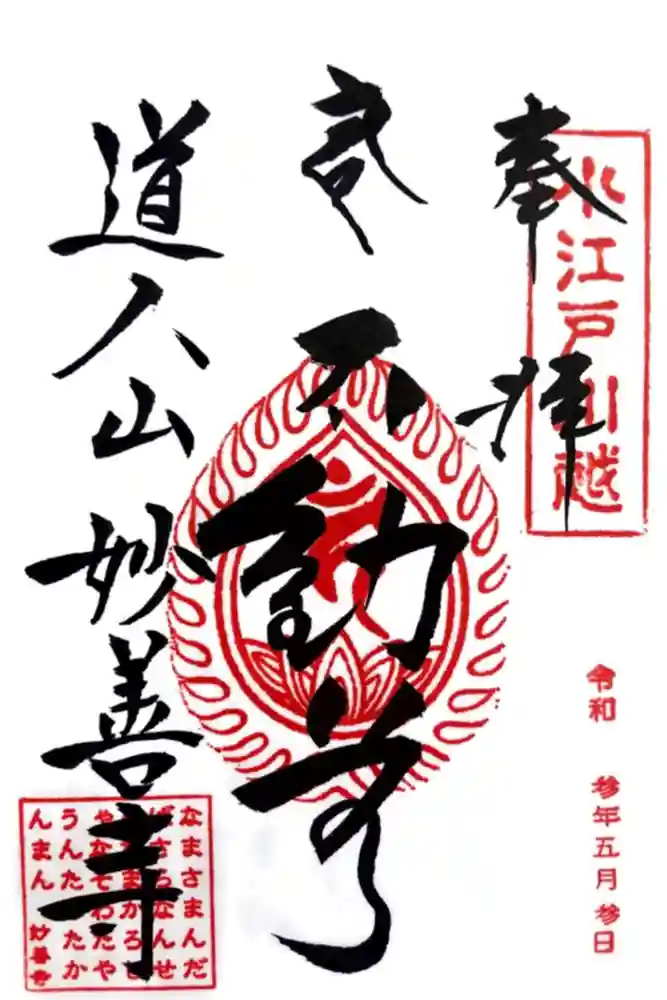 奉拝
小江戸川越
令和 参年五月参日
不動尊
道人山 妙善寺
なまさまんだ
ばさらなんせ
んだまかろし
やなそわたや
うんたらたか
んまん 妙善寺